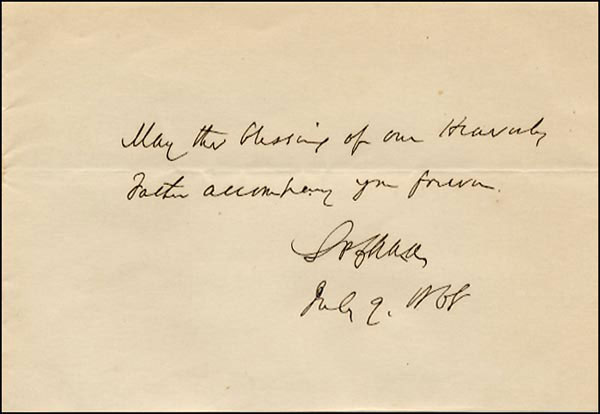 May the blessing of our Heavenly
Father accompany you forever.
SPChase
July 9. 1868